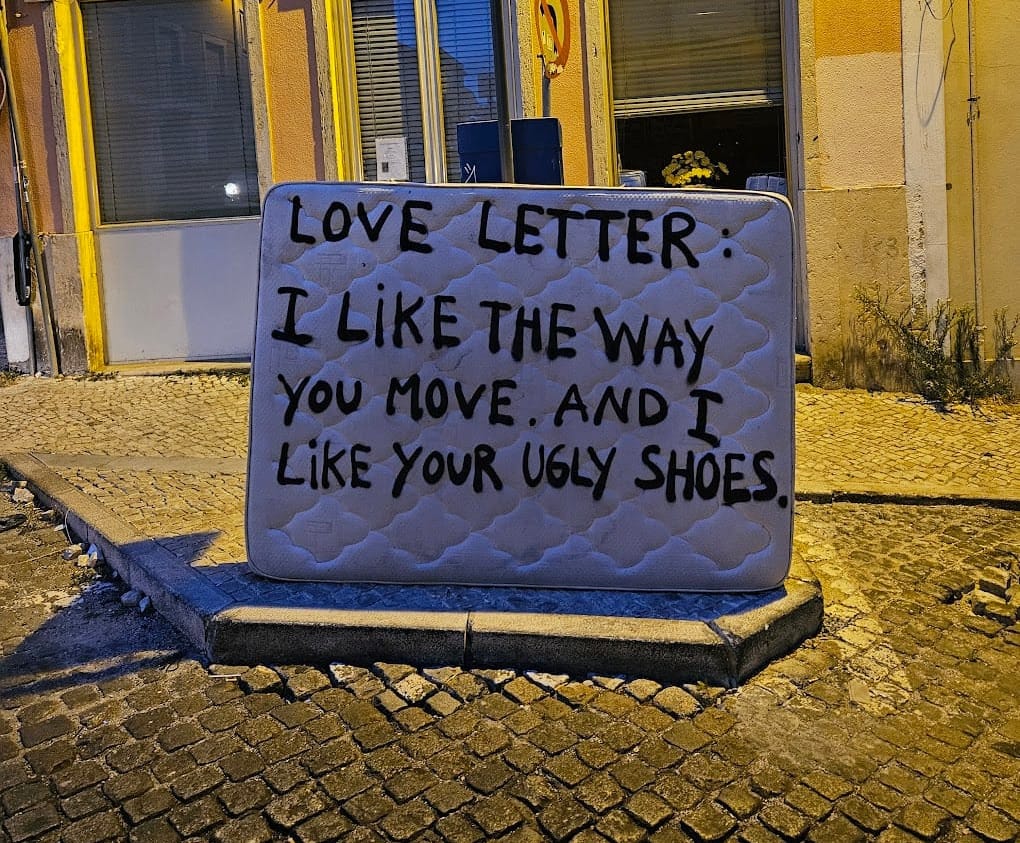 LOVE LETTER:
I LiKE THE WAY
YOU MOVE. AND I
LiKE YOUR UGLY SHOES.